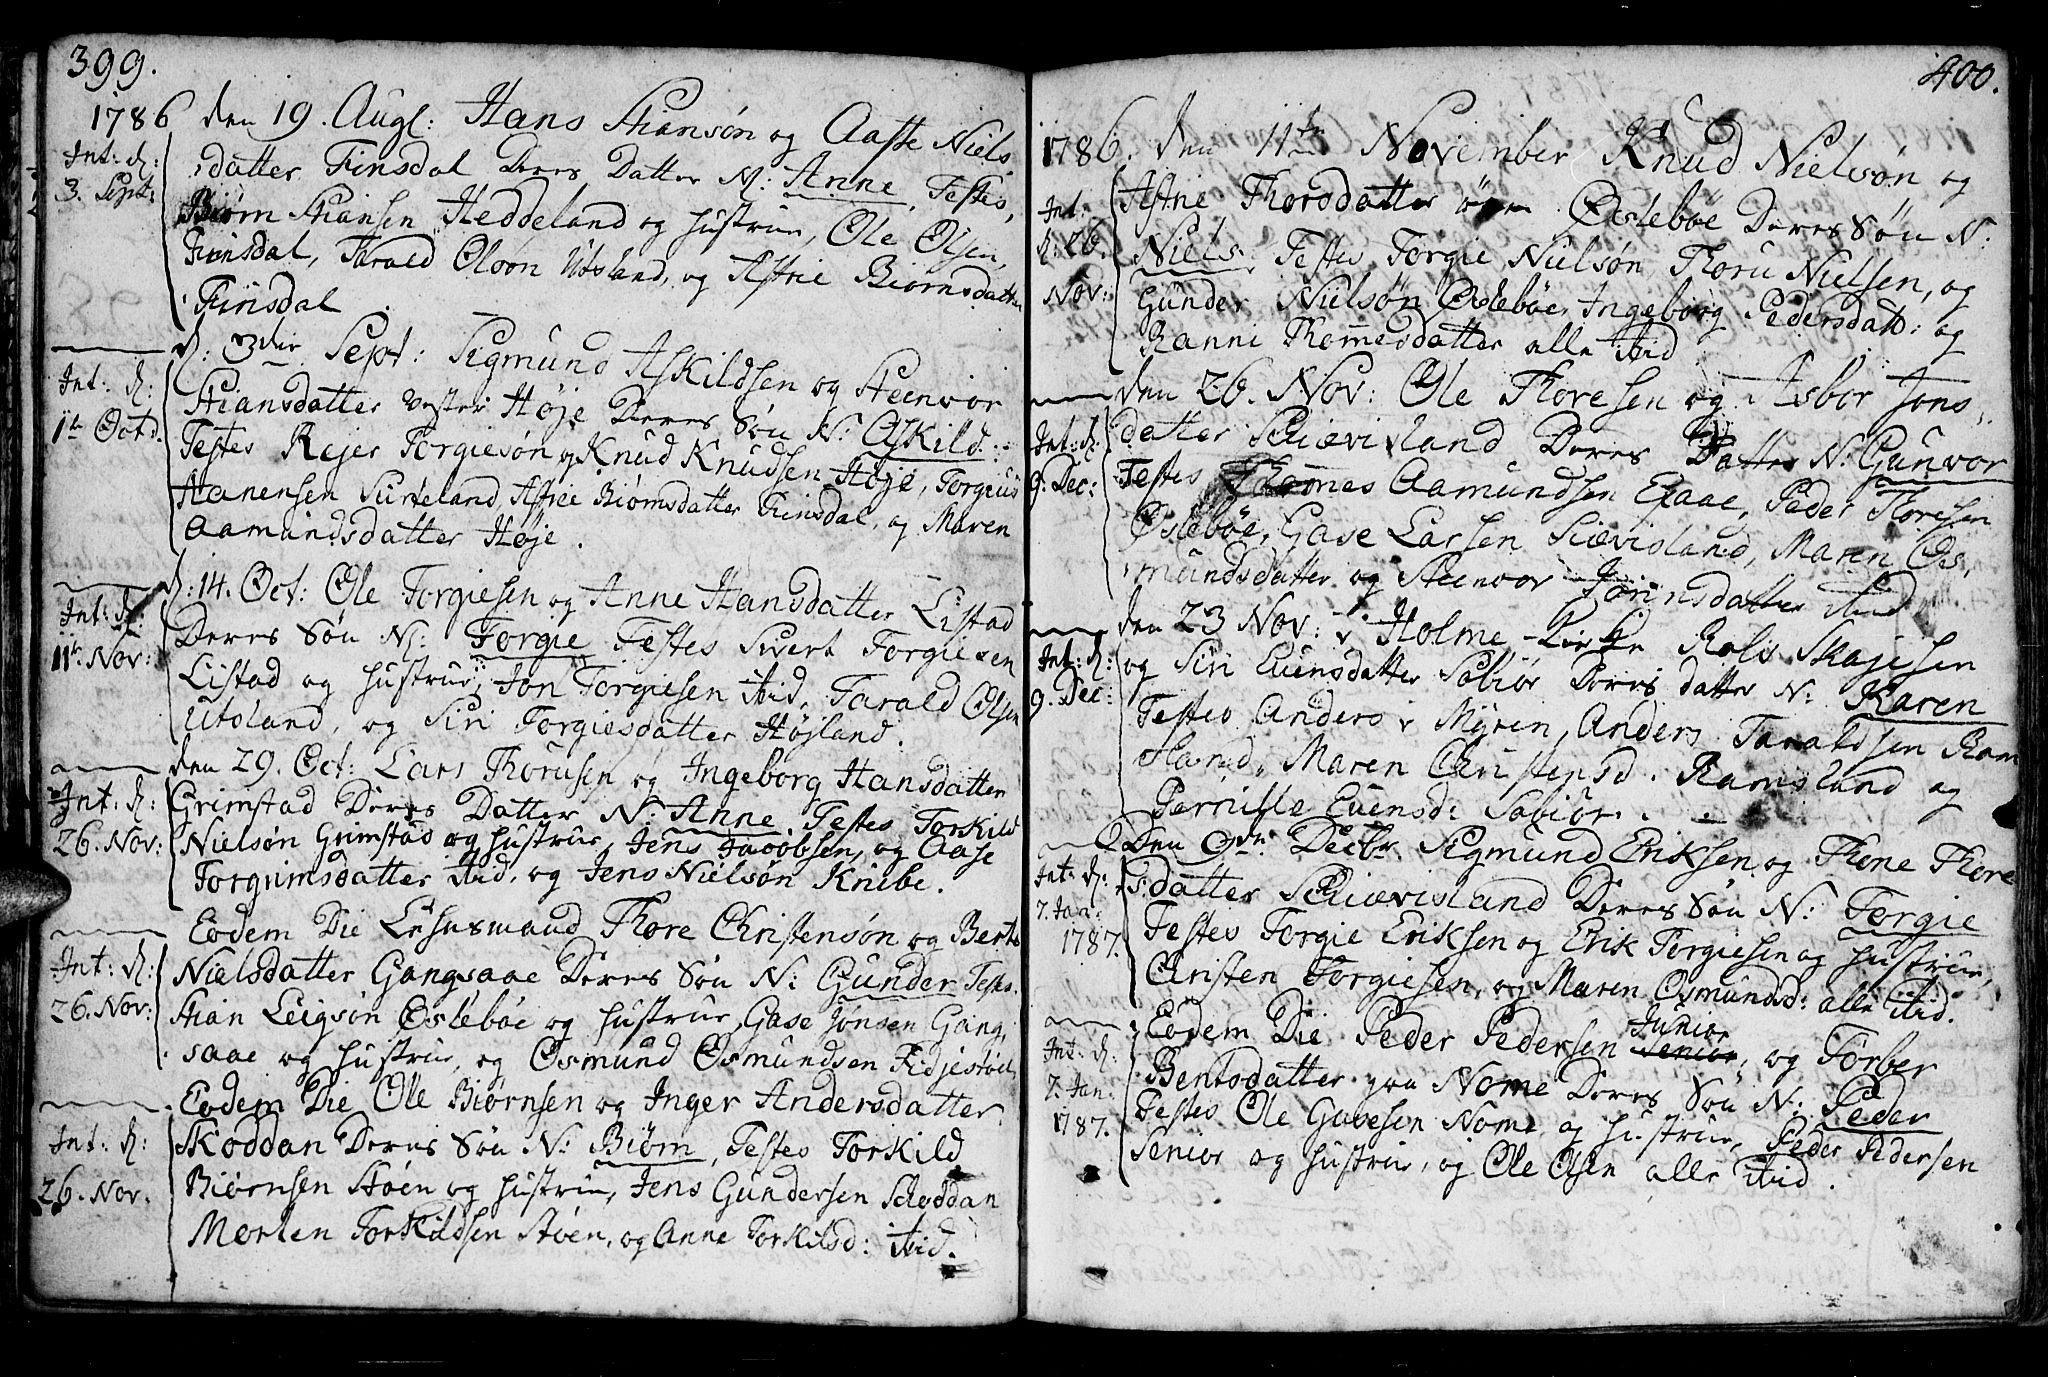 399.
1786 den 19. Augl: Hans Stiansøn og Aaste Niels
Int: K:
3. Sept:
datter Finsdal Deres Datter N: Anne, Testes,
Biørn Stiansen Heddeland og hustrue, Ole Olsen,
Finsdal, Tarald Olsøn Utsland, og Astrie Biørnsdatter
Finsdal.
d: 3die Sept: Sigmund Askildsen og Steenvor
Int: K:
1te Octb.
Stiansdatter Vester Høje Deres Søn N: Askild.
Testes Rejer Torgiesøn og Knud Knudsen Høje, Torgius
Hanensen Surteland, Astrie Biørnsdatter Finsdal, og Maren
Aamundsdatter Høje.
d: 14. Oct: Ole Torgiesen og Anne Hansdatter Listad
Int: K:
11te Nov:
Deres Søn N: Torgie Testes Sivert Torgiesen
Listad og hustrue, Jon Torgiesen ibid, Tarald Olsen
Utsland, og Siri Torgiesdatter Højland.
den 29. Oct: Lars Thorusen og Ingeborg Hansdatter
Int: K:
26. Nov:
Grimstad Deres Datter N: Anne Testes Torkild
Nielsøn Grimstad og hustrue, Jens Jacobsen, og Aase
Torgrimsdatter ibid, og Jens Nielsøn Knibe.
Eodem Die Lehnsmand Thore Christensøn og Berte
Int: K:
26. Nov:
Nielsdatter Gangsaae Deres Søn N: Gunder Testes
Stian Leigsøn Øslebøe og hustrue, Gase Jonsen Gang,
saae og hustrue, og Osmund Osmundsen Fidjestøel,
Eodem Die Ole Biørnsen og Inger Andersdatter
Int: K:
26. Nov.
Skoddan Deres Søn N: Biørn, Testes Torkild
Biørnsen Støen og hustrue, Jens Gundersen Schoddan
Morten Torkildsen Støen, og Anne Torkilsd: ibid.
400.
1786. den 11te November Knud Nielsøn og
Int:
K: 26.
Nov:
Astrie Thorsdatter Øslebøe Deres Søn N:
Niels. Testes Torgie Nielsøn, Thoru Nielsen, og
Gunder Nielsøn Øslebøe, Ingeborg Pedersdatt: og
Ranni Thomesdatter alle ibid
den 26. Nov: Ole Thoresen og Asbor Jons,
Int: K:
9. Dec:
datter Schievisland Deres Datter N: Gunvor
Testes Thomes Aamundsen Egaae, Peder Thoresen
Øslebøe, Gase Larsen Scievisland, Maren Os,
mundsdatter og Steenvor Jørinsdatter ibid
den 23 Nov: i Holme Kirke Rols Skajesen
Int: K:
9. Dec:
og Siri Evensdatter Sabiør Deres datter N: Karen
Testes Anders i Myren, Anders Taraldsen Ram
sland, Maren Christensd. Ramsland og
Pernille Evensd: Sabiør.
Den 9de Decbr Sigmund Eriksen og Thone Thore
Int: K:
7. Jan:
1787.
datter Schievisland Deres Søn N: Torgie
Testes Torgie Eriksen og Erik Torgiesen og hustrue,
Christen Torgiesen, og Maren Osmundsd: alle ibid.
Eodem Die Peder Pedersen Senior Junior, og Torber
Int: K:
7. Jan:
1787.
Bentsdatter paa Nome Deres Søn N: Peder
Testes Ole Guvesen Nome og hustrue, Peder Pedersen
Senior og hustrue, og Ole Olsen alle ibid.